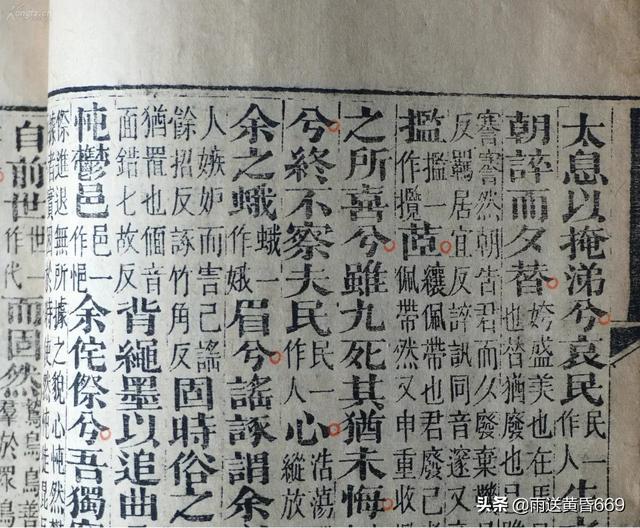 太息以掩涕兮哀民民一作人生
朝誶而夕替
也替猶廢也
謇謇然朝吿君而夕廢棄
反羈居宜反誶訊同音邃又
擥擥一作攬茝纕佩帶也君廢己佩帶然又申重收
之所喜兮雖九死其猶未悔
兮終不察夫民民一作人心浩蕩縱放
余之蛾蛾一作娥眉兮謠諑謂余
人嫉妒而害己謠餘招反諑竹角反固時俗之
猶置也偭音面錯七故反背繩墨以追曲
忳鬱邑邑一作悒余侘傺兮吾獨
傺進退無所據之貌心忳然
自前世世一作代而固然
頭條 @雨送黄昏669